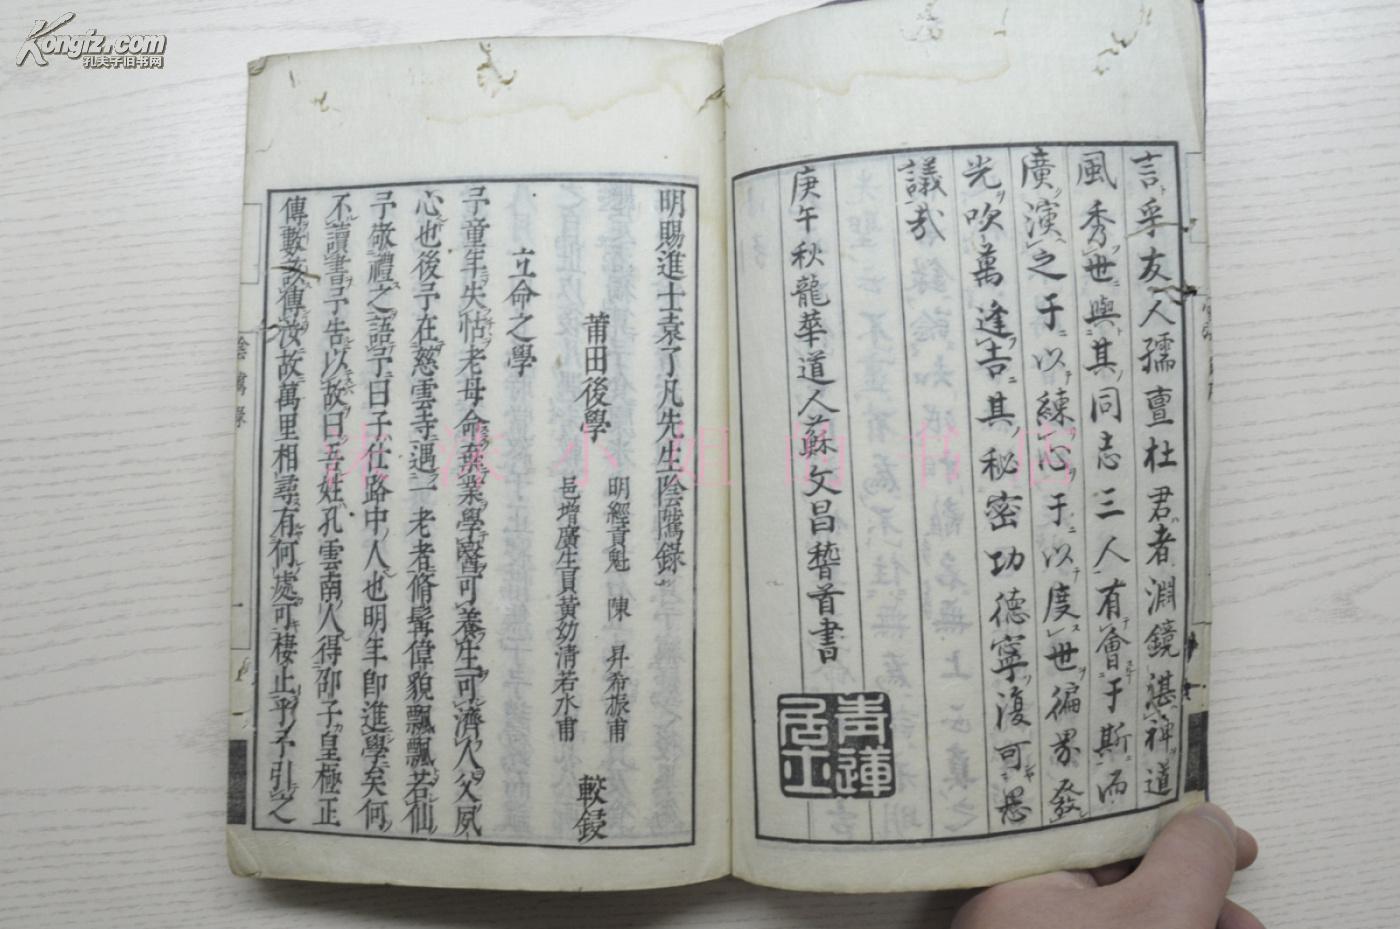 Kongfz.com
孔夫子旧书网
言乎友人孺亶杜君者淵鏡湛神道
風秀世與其同志三人有會于斯而
廣演之于以練心于以度世徧界發
光吹萬逢吉其秘密功德寧復可思
議哉
庚午秋龍華道人蘇文昌稽首書
青蓮居士
明賜進士袁了凡先生陰騭錄
莆田後學
明經貢魁 陳 昇希振甫
邑增廣生員黃幼清若水甫
較錄
立命之學
予童年失怙老母命棄業學醫可養生可濟人父夙
心也後予在慈雲寺遇一老者脩髯偉貌飄飄若仙
予敬禮之語予曰子仕路中人也明年即進學矣何
不讀書予告以故曰吾姓孔雲南人得邵子皇極正
傳數該傳汝故萬里相尋有何處可棲止乎予引之
陰騭錄
沫沫小姐的书店